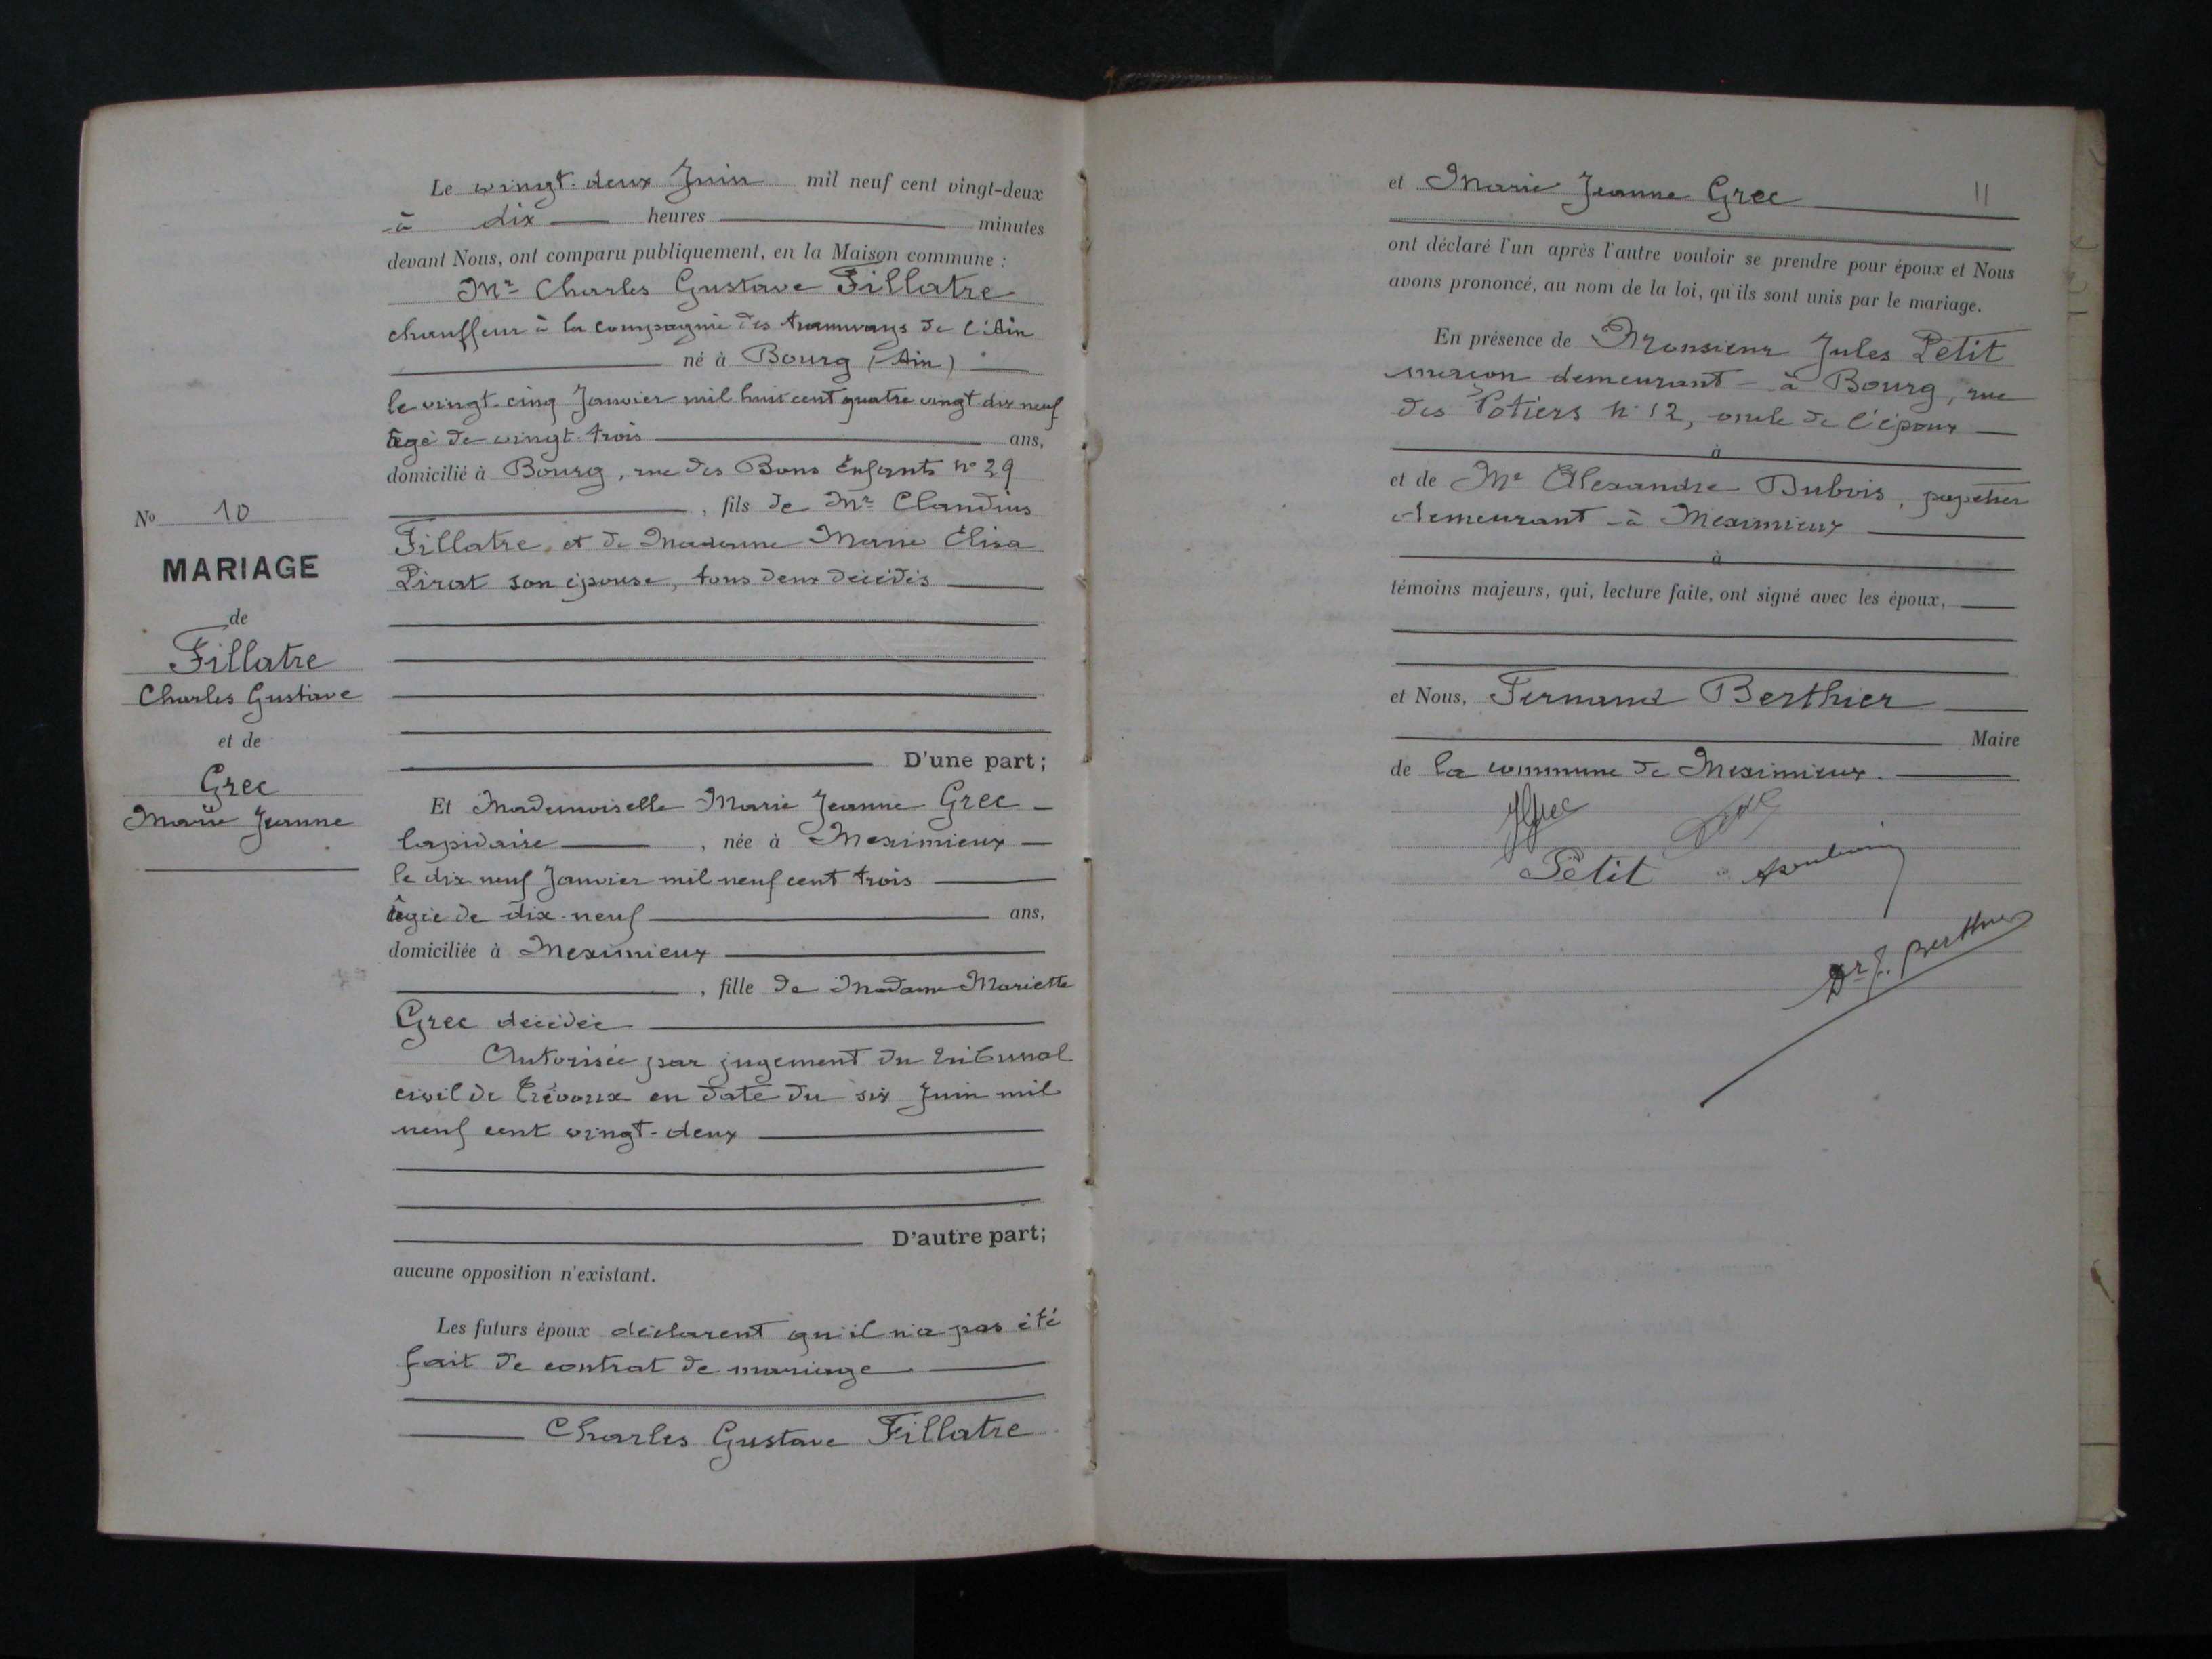 Le vingt-deux Juin mil neuf cent vingt-deux
à dix heures minutes
devant Nous, ont comparu publiquement, en la Maison commune :
Mr Charles Gustave Fillatre
chauffeur à la compagnie des tramways de l'Ain
né à Bourg (Ain)
le vingt-cinq Janvier mil huit cent quatre vingt dix neuf
âgé de vingt-trois ans,
domicilié à Bourg, rue des Bons Enfants no 29
, fils de Mr Claudius
Fillatre, et de Madame Marie Élisa
Pirat son épouse, tous deux décédés
No 10
MARIAGE
de
Fillatre
Charles Gustave
et de
Grec
Marie Jeanne
D'une part ;
Et Mademoiselle Marie Jeanne Grec
lapidaire , née à Meximieux
le dix neuf Janvier mil neuf cent trois
âgée de dix-neuf ans,
domiciliée à Meximieux
, fille de Madame Mariette
Grec décédée
Autorisée par jugement du tribunal
civil de Trévoux en date du six Juin mil
neuf cent vingt-deux
D'autre part ;
aucune opposition n'existant.
Les futurs époux déclarent qu'il n'a pas été
fait de contrat de mariage
Charles Gustave Fillatre
et Marie Jeanne Grec 11
ont déclaré l'un après l'autre vouloir se prendre pour époux et Nous
avons prononcé, au nom de la loi, qu'ils sont unis par le mariage.
En présence de Monsieur Jules Petit
maçon demeurant à Bourg, rue
des Potiers n° 12, oncle de l'époux
à
et de Mr Alexandre Dubois, papetier
demeurant à Meximieux
à
témoins majeurs, qui, lecture faite, ont signé avec les époux,
et Nous, Fernand Berthier
Maire
de la commune de Meximieux.
JGrec
Petit
Dr F. Berthier